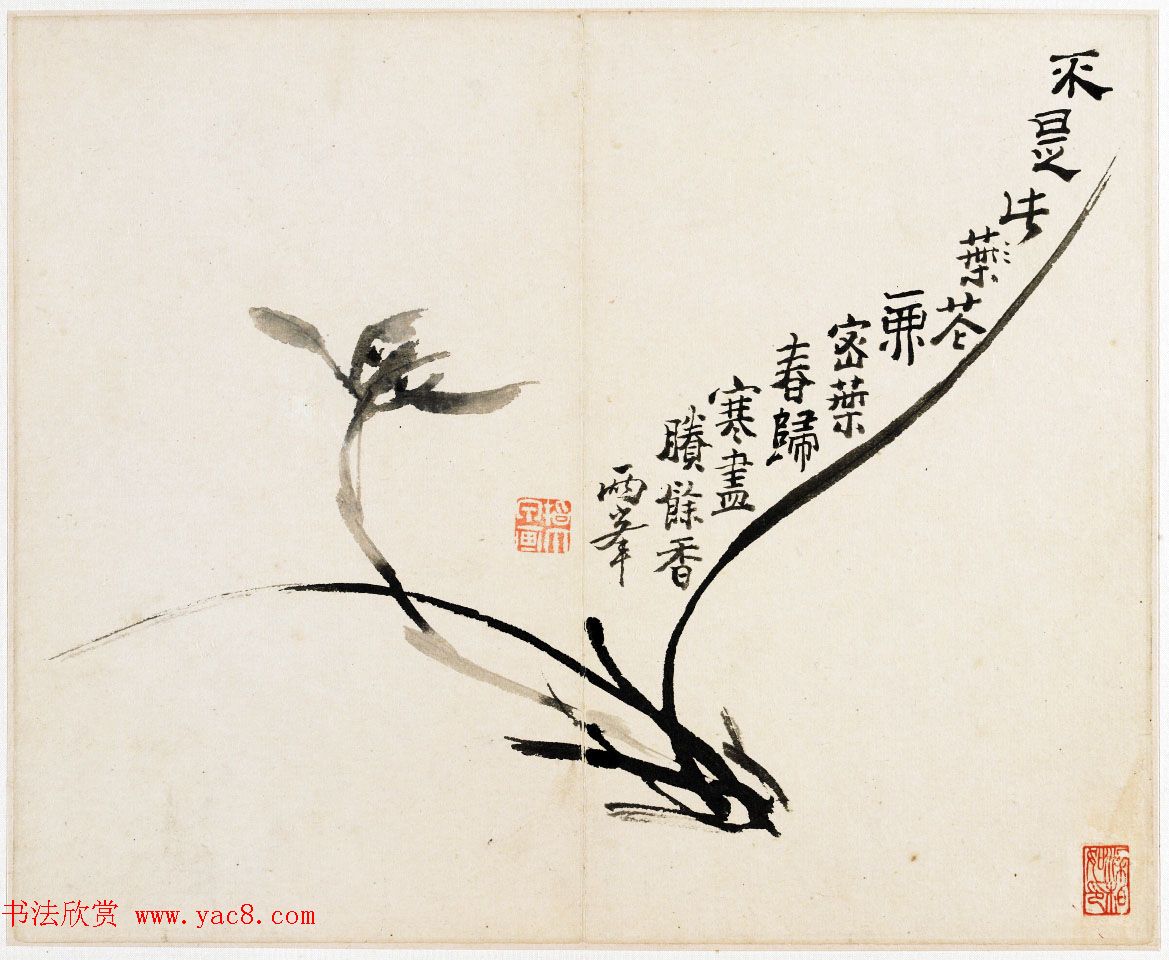 不
是
葉
花
兼
密葉
春歸
寒盡
賸餘香
兩峯
书法欣赏 www.yac8.com